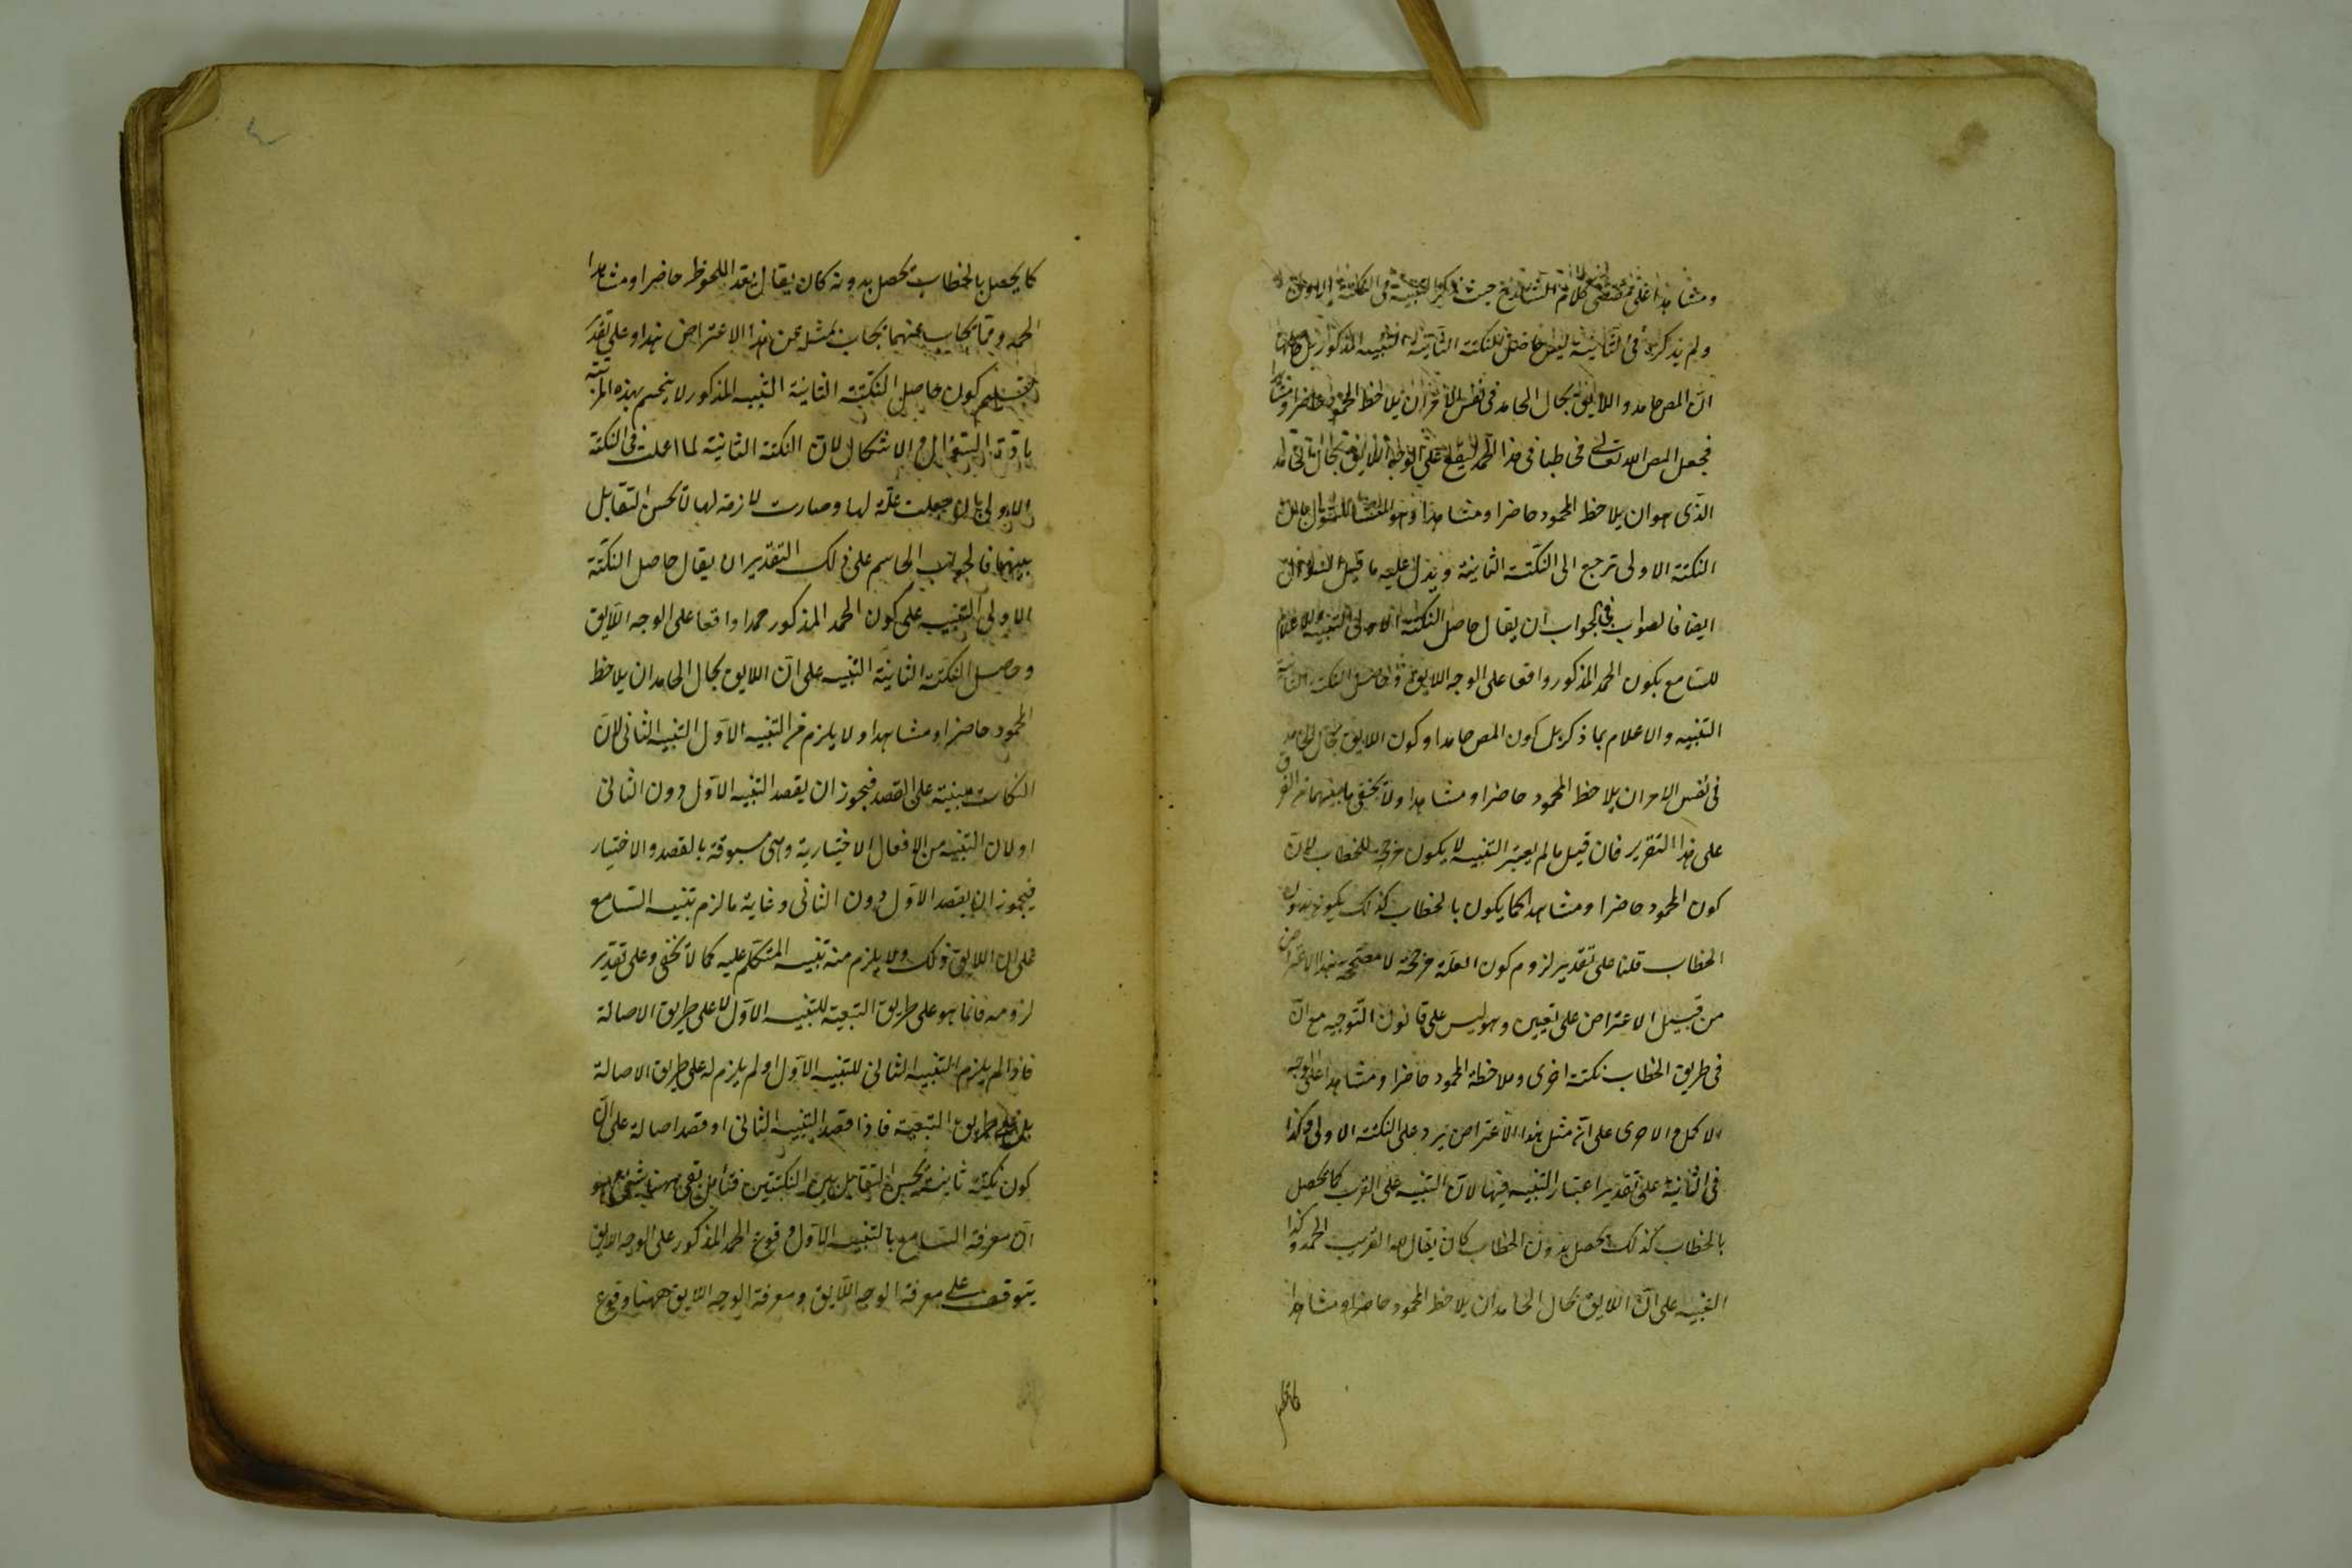 ومشاهدا على مقتضى كلام الشارح حيث ذكر التنبيه فى النكتة الاولى
ولم يذكر فى الثانية ليس حاصل النكتة الثانية التنبيه المذكور بل حاصلها
ان المص حامد واللايق بحال الحامد فى نفس الامر ان يلاحظ المحمود حاضرا ومشاهدا
فجعل المص الله تعالى مخاطبا فى هذا الحمد ليقع على الوجه اللايق بحال الحامد
الذى هو ان يلاحظ المحمود حاضرا ومشاهدا وهو المنشأ للسؤال بان
النكتة الاولى ترجع الى النكتة الثانية ويدل عليه ما قيل
ايضا فالصواب فى الجواب ان يقال حاصل النكتة الاولى التنبيه والاعلام
للسامع بكون الحمد المذكور واقعا على الوجه اللايق وحاصل النكتة الثانية
التنبيه والاعلام بما ذكر بل كون المص حامدا وكون اللايق بحال الحامد
فى نفس الامر ان يلاحظ المحمود حاضرا ومشاهدا ولا يخفى ما بينهما من الفرق
على هذا التقرير فان قيل ما لم يعتبر التنبيه لا يكون مرجحا للخطاب لان
كون المحمود حاضرا ومشاهدا كما يكون بالخطاب كذلك يكون بدون
الخطاب قلنا على تقدير لزوم كون العلة مرجحة لا مصححة هذا الاعتراض
من قبيل الاعتراض على تعيين وهو ليس على قانون التوجيه مع ان
فى طريق الخطاب نكتة اخرى وملاحظة المحمود حاضرا ومشاهدا على الوجه
الاكمل والاحرى على انه مثل هذا الاعتراض يرد على النكتة الاولى وكذا
فى الثانية على تقدير اعتبار التنبيه فيها لان التنبيه على القرب كما يحصل
بالخطاب كذلك يحصل بدون الخطاب كان يقال لله القريب الحمد وكذا
التنبيه على ان اللايق بحال الحامد ان يلاحظ المحمود حاضرا ومشاهدا
كما يحصل بالخطاب يحصل بدونه كان يقال بعد الملحوظ حاضرا ومشاهدا
الحمد وما يجاب عنهما يجاب بمثله عن هذا الاعتراض هذا وعلى تقدير
تسليم كون حاصل النكتة الثانية التنبيه المذكور لا ينحسم بهذه المرتبة
مادة السؤال والاشكال لان النكتة الثانية لما اعلت فى النكتة
الاولى بان جعلت علة لها وصارت لازمة لها لا يحسن التقابل
بينهما فالجواب الحاسم على ذلك التقدير ان يقال حاصل النكتة
الاولى التنبيه على كون الحمد المذكور حمدا واقعا على الوجه اللايق
وحاصل النكتة الثانية التنبيه على ان اللايق بحال الحامد ان يلاحظ
المحمود حاضرا ومشاهدا ولا يلزم من التنبيه الاول التنبيه الثانى لان
النكات مبنية على القصد فيجوز ان يقصد التنبيه الاول دون الثانى
او لان التنبيه من الافعال الاختيارية وهى مسبوقة بالقصد والاختيار
فيجوز ان يقصد الاول دون الثانى وغاية ما لزم تنبيه السامع
على ان اللايق ذلك ولا يلزم منه تنبيه المتكلم عليه كما لا يخفى وعلى تقدير
لزومه فانما هو على طريق التبعية للتنبيه الاول لا على طريق الاصالة
فاذا لم يلزم التنبيه الثانى للتنبيه الاول او لم يلزم له على طريق الاصالة
بل على طريق التبعية فاذا قصد التنبيه الثانى او قصد اصالة على ان
كون نكتة ثانية يحسن التقابل بين النكتتين فتأمل بقى ههنا شئ وهو
ان معرفة السامع بالتنبيه الاول وقوع الحمد المذكور على الوجه اللايق
يتوقف على معرفة الوجه اللايق ومعرفة الوجه اللايق ههنا وقوع